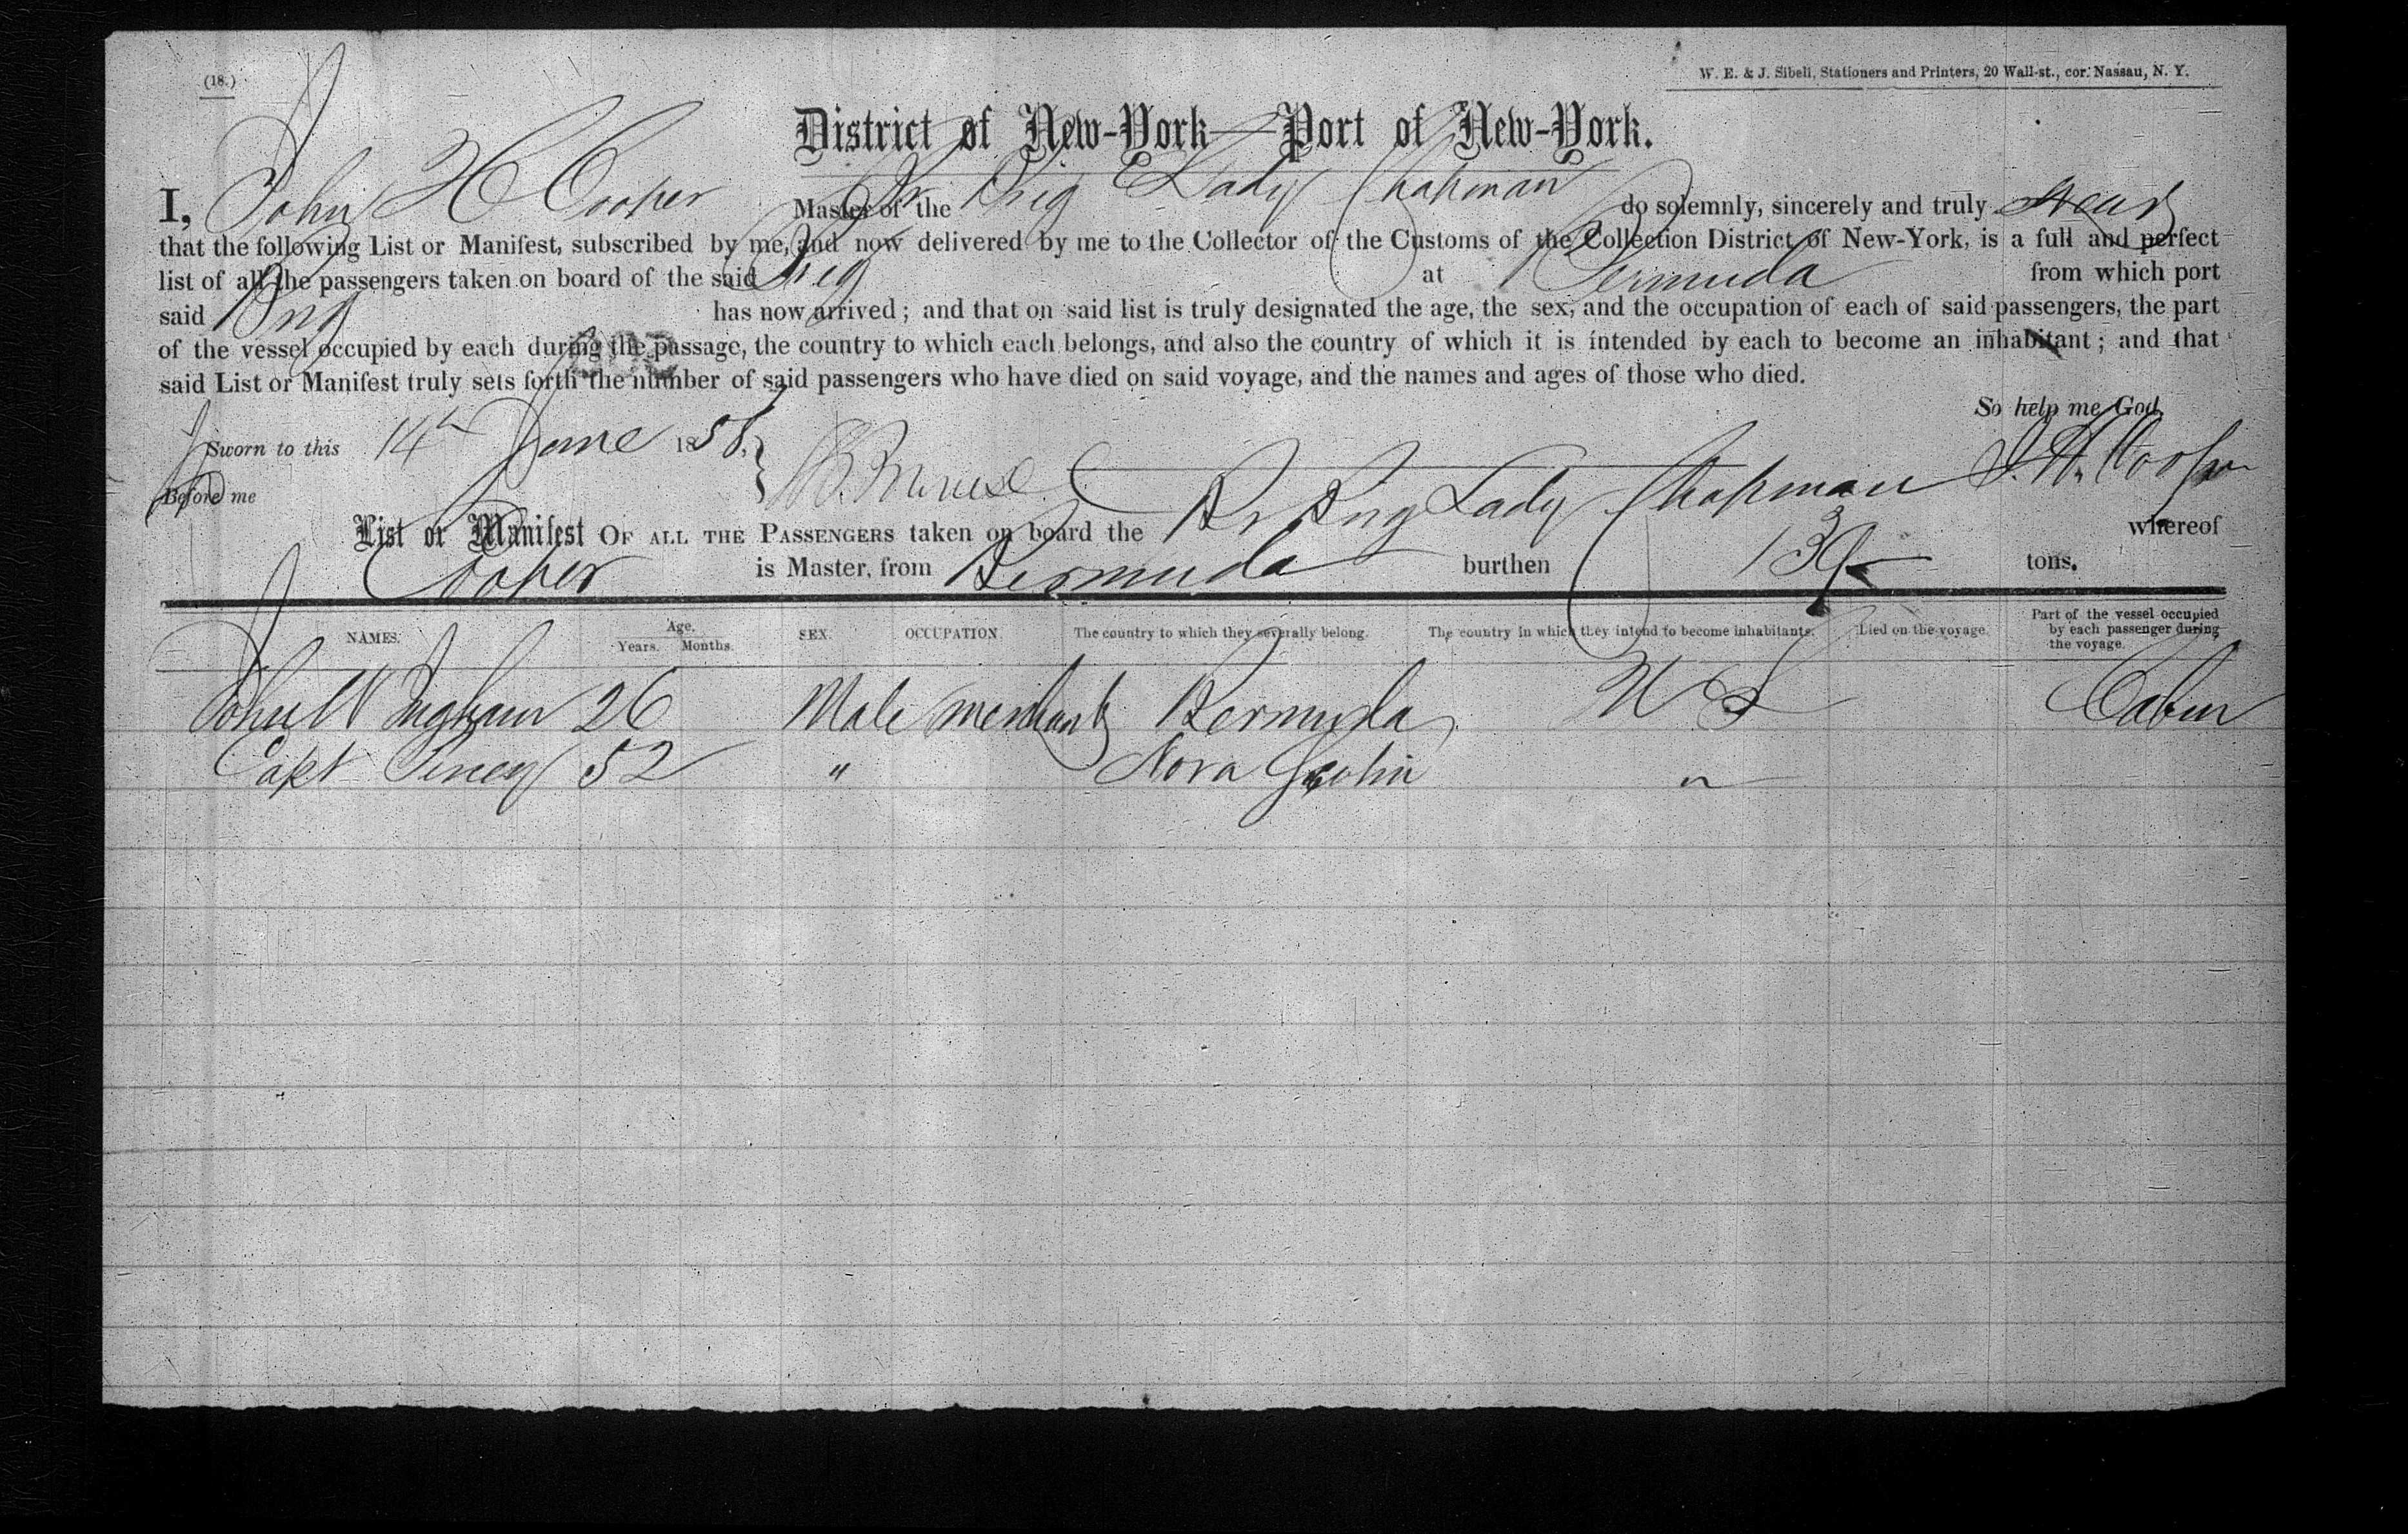 (18.)
W. E. & J. Sibell, Stationers and Printers, 20 Wall-st., cor. Nassau, N. Y.
District of New-York—Port of New-York.
I, John H Cooper Master of the Br Brig Lady Chapman do solemnly, sincerely and truly swear
that the following List or Manifest, subscribed by me, and now delivered by me to the Collector of the Customs of the Collection District of New-York, is a full and perfect
list of all the passengers taken on board of the said Brig at Bermuda from which port
said Brig has now arrived; and that on said list is truly designated the age, the sex, and the occupation of each of said passengers, the part
of the vessel occupied by each during the passage, the country to which each belongs, and also the country of which it is intended by each to become an inhabitant; and that
said List or Manifest truly sets forth the number of said passengers who have died on said voyage, and the names and ages of those who died.
So help me God.
Sworn to this 14th June 1858, J. H. Cooper
Before me
List or Manifest OF ALL THE PASSENGERS taken on board the Br Brig Lady Chapman whereof
Cooper is Master, from Bermuda burthen 139 tons.
NAMES. Age. Years. Months. SEX. OCCUPATION. The country to which they severally belong. The country in which they intend to become inhabitants. Died on the voyage. Part of the vessel occupied by each passenger during the voyage.
John W Ingham 26 Male merchant Bermuda U S Cabin
Capt 52 " Nova Scotia "